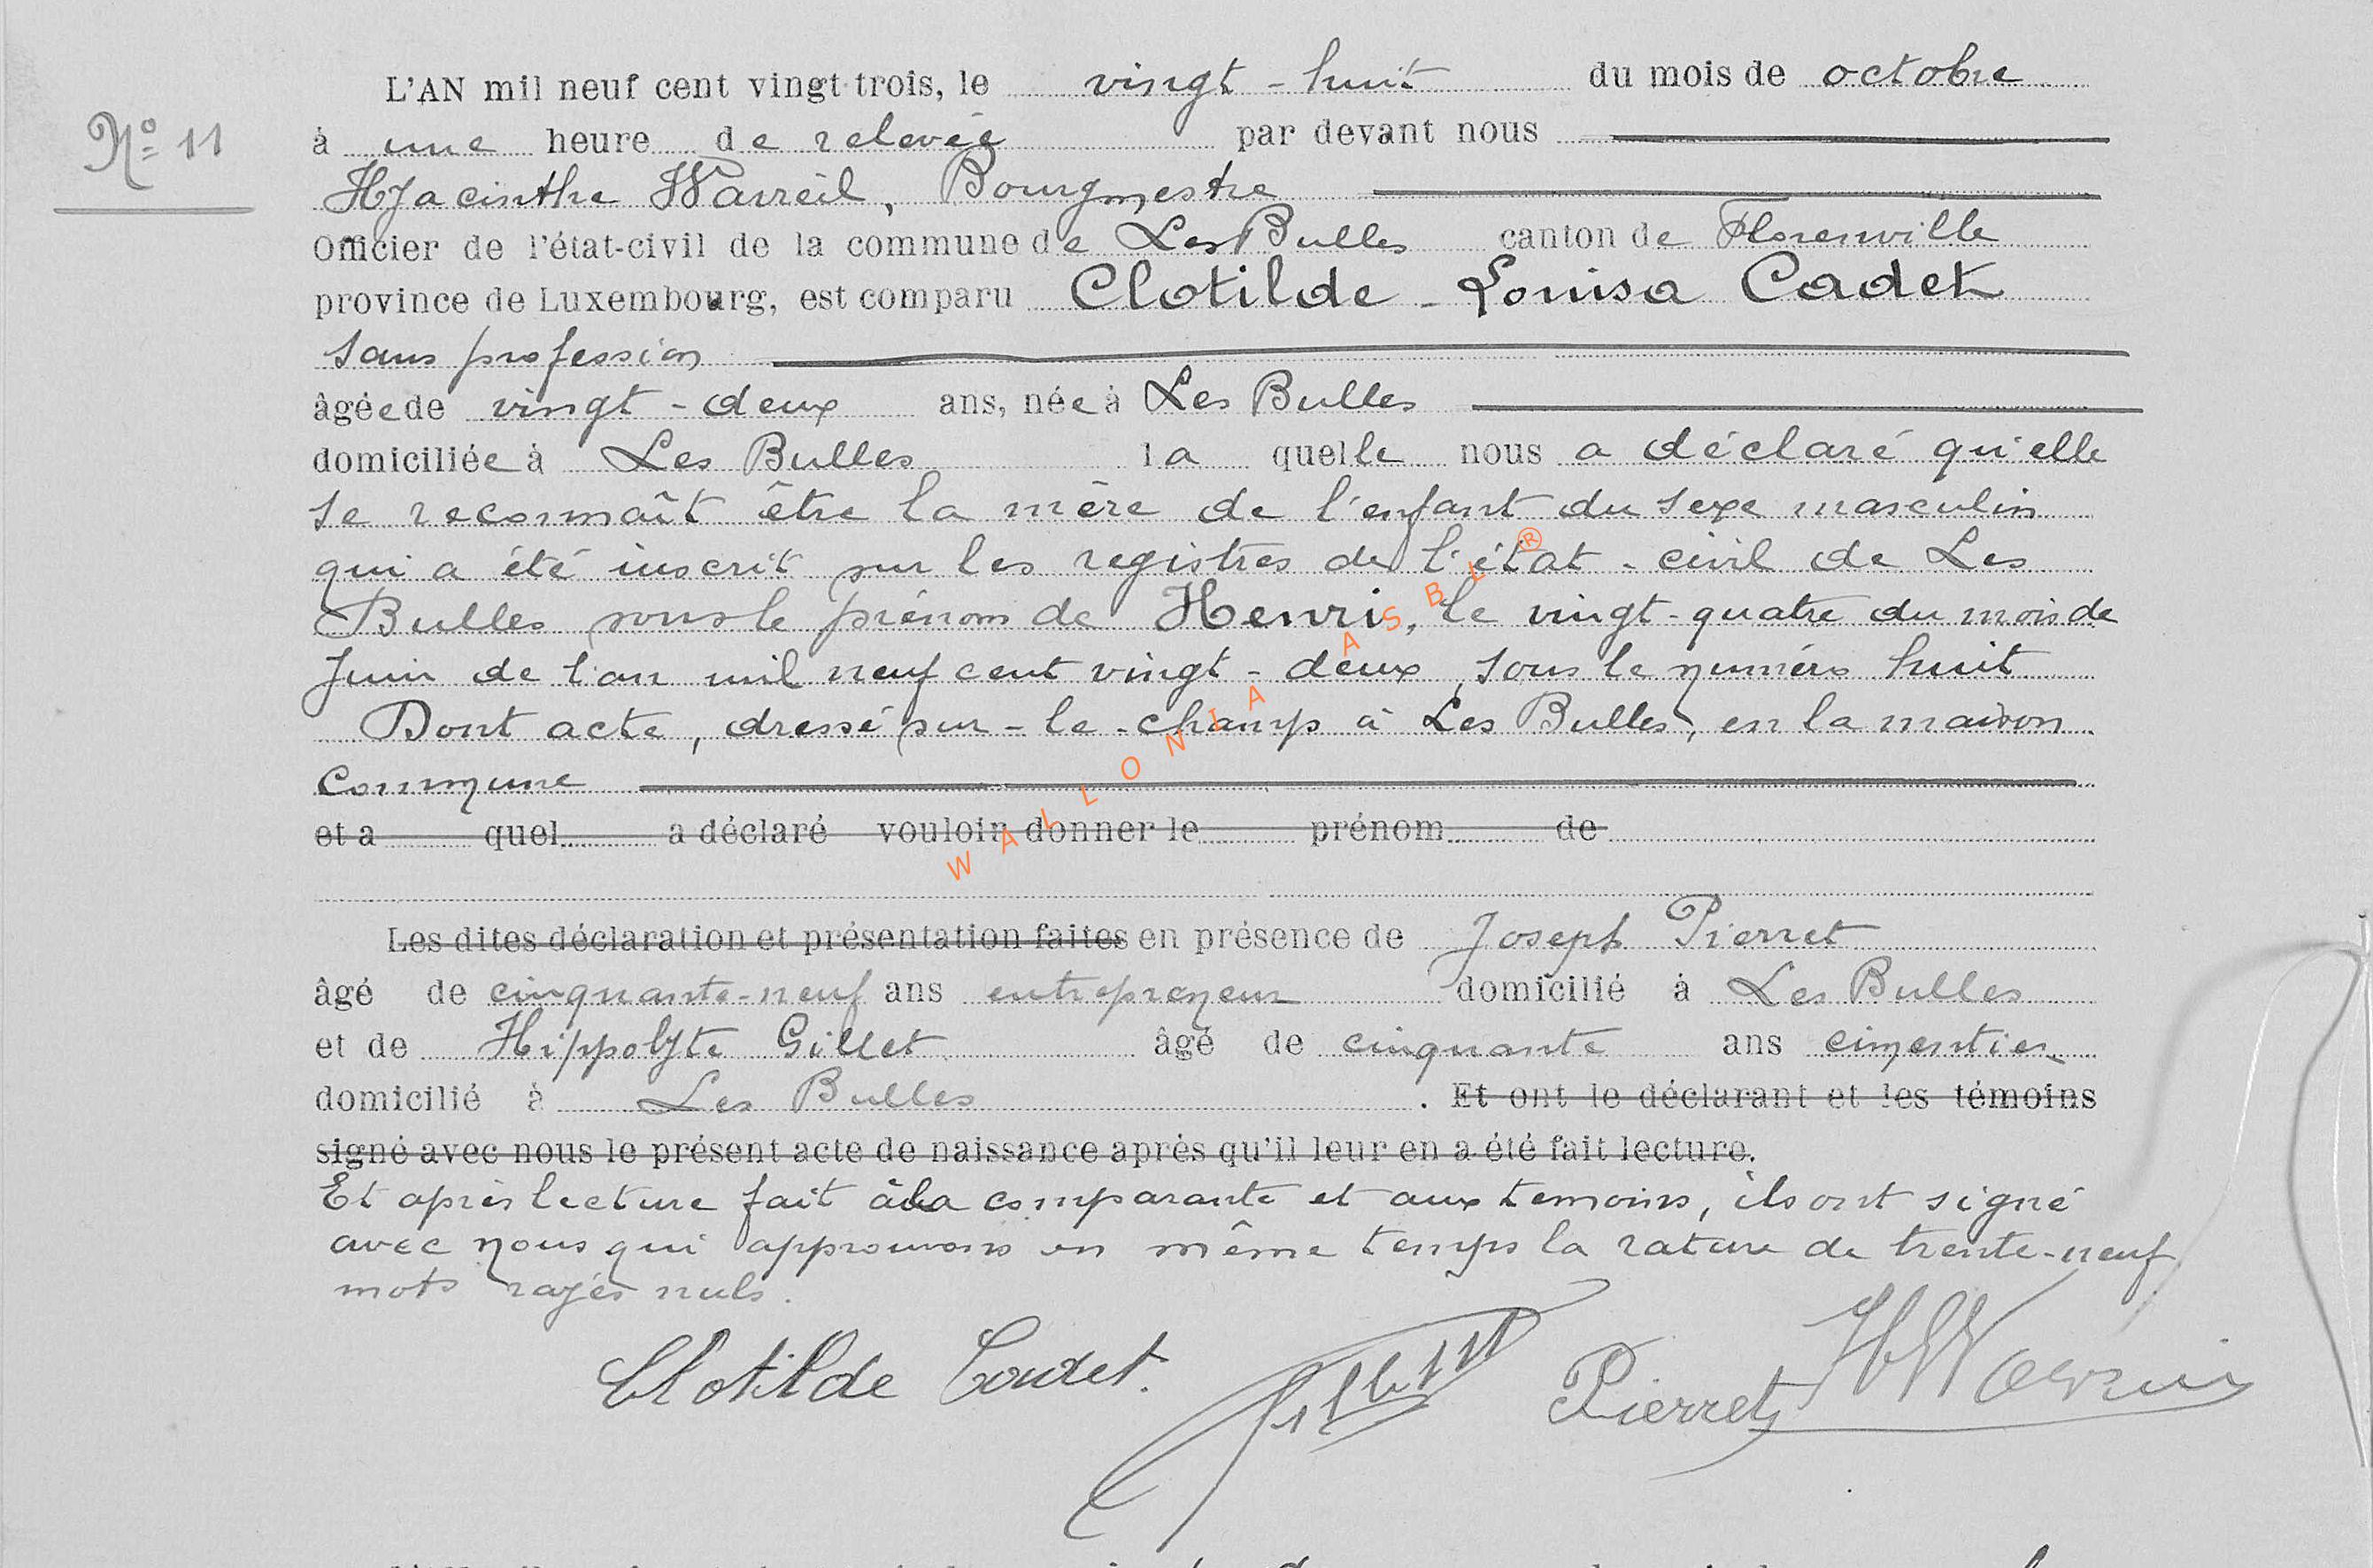 L'AN mil neuf cent vingt-trois, le vingt-huit du mois de octobre
N° 11
à une heure de relevée par devant nous
Hyacinthe Warreil, Bourgmestre
Officier de l'état-civil de la commune de Les Bulles canton de Florenville
province de Luxembourg, est comparu Clotilde-Louisa Cadet
sans profession
âgée de vingt-deux ans, née à Les Bulles
domiciliée à Les Bulles laquelle nous a déclaré qu'elle
se reconnaît être la mère de l'enfant du sexe masculin
qui a été inscrit sur les registres de l'état-civil de Les
Bulles sous le prénom de Henri, le vingt-quatre du mois de
Juin de l'an mil neuf cent vingt-deux, sous le numéro huit
Dont acte, dressé sur-le-champ à Les Bulles, en la maison
Commune
et a quel a déclaré vouloir donner le prénom de
WALLONIA ASBL ®
Les dites déclaration et présentation faites en présence de Joseph Pierret
âgé de cinquante-neuf ans entrepreneur domicilié à Les Bulles
et de Hippolyte Gillet âgé de cinquante ans cimentier
domicilié à Les Bulles. Et ont le déclarant et les témoins
signé avec nous le présent acte de naissance après qu'il leur en a été fait lecture.
Et après lecture fait à la comparante et aux temoins, ils ont signé
avec nous qui approuvons en même temps la rature de trente-neuf
mots rayés nuls.
Clotilde Cadet. Pierret